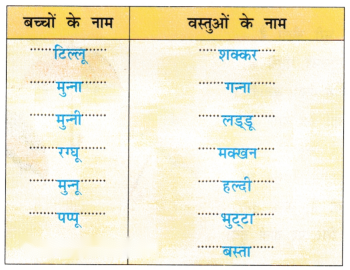 बच्चों के नाम वस्तुओं के नाम
टिल्लू शक्कर
मुन्ना गन्ना
मुन्नी लड्डू
रग्घू मक्खन
मुन्नू हल्दी
पप्पू भुट्टा
बस्ता